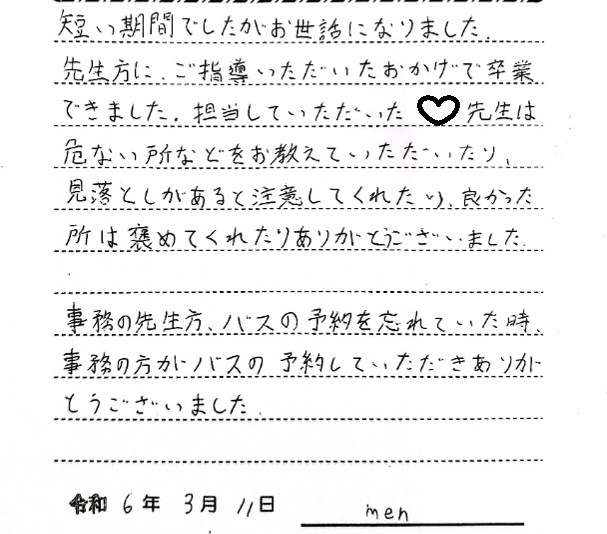 短い期間でしたがお世話になりました。
先生方に、ご指導いただいたおかげで卒業
できました。担当していただいた♡先生は
危ない所などをお教えていただいたり、
見落としがあると注意してくれたり、良かった
所は褒めてくれたりありがとうございました。
事務の先生方、バスの予約を忘れていた時、
事務の方がバスの予約していただきありが
とうございました。
令和 6年 3月 11日 men